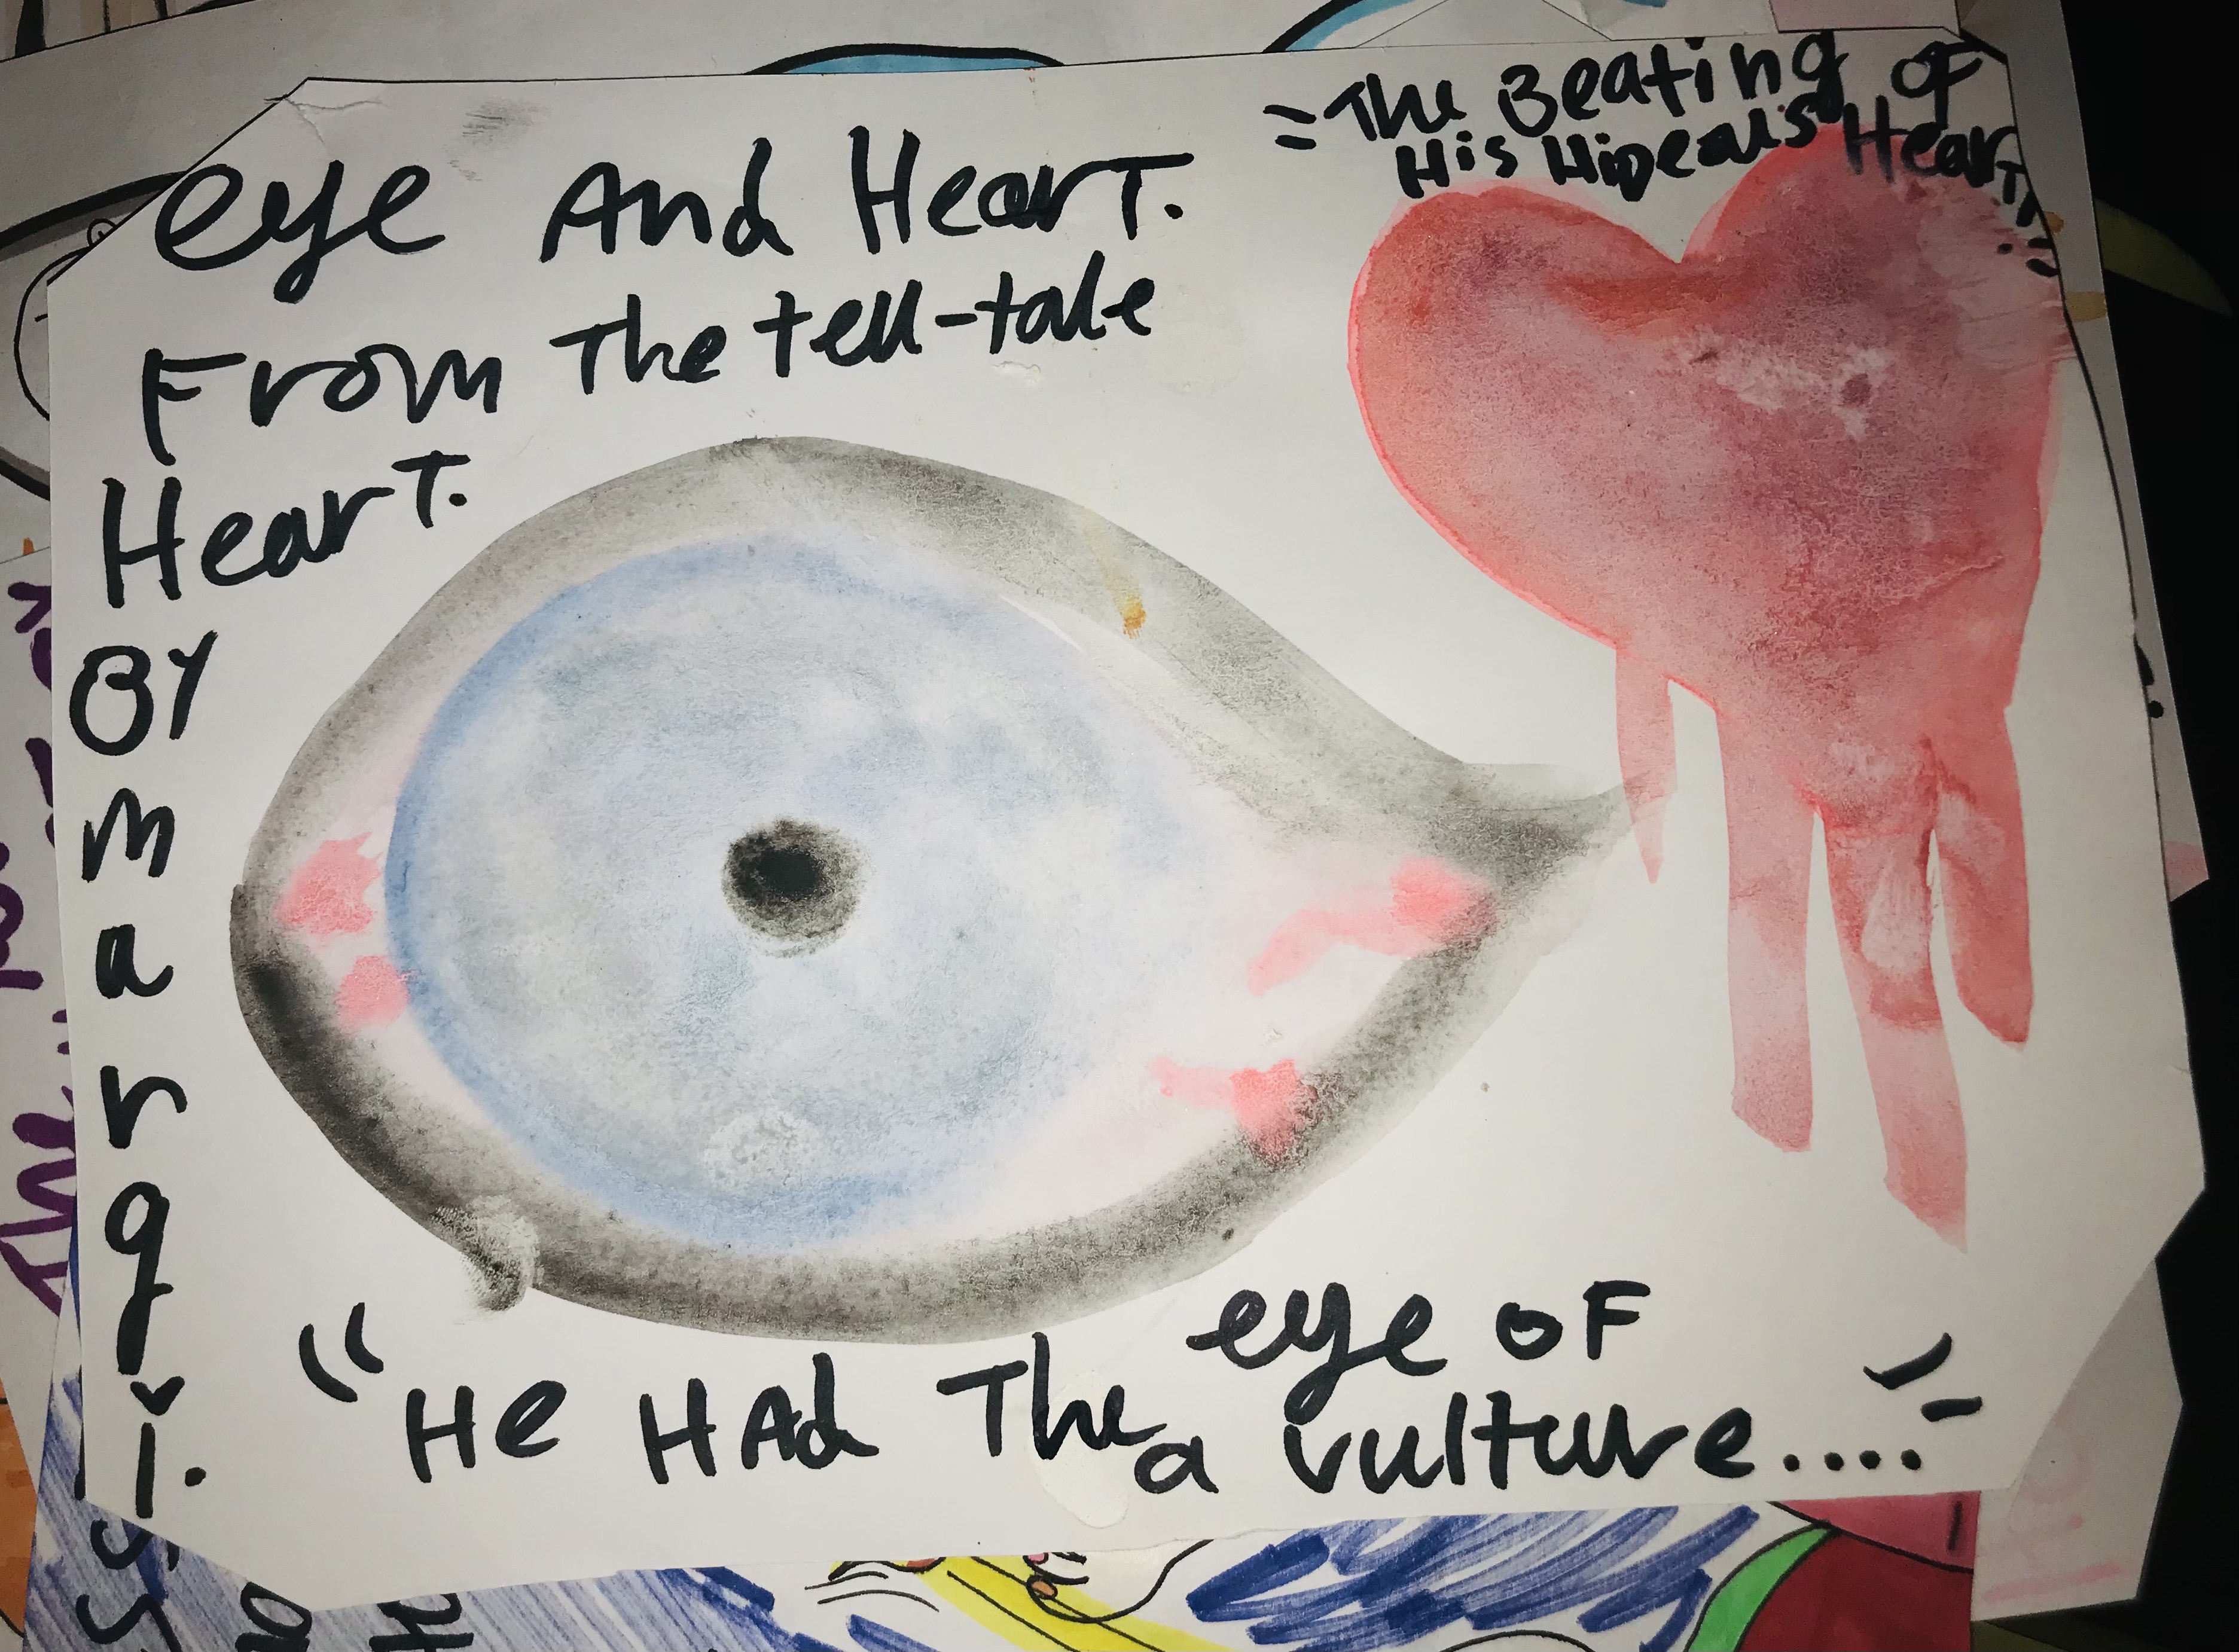 eye And Heart.
From The tell-tale
Heart.
BY
margi.
"The Beating of
His Hideous Heart"
"He HAd The eye of
a vulture...."